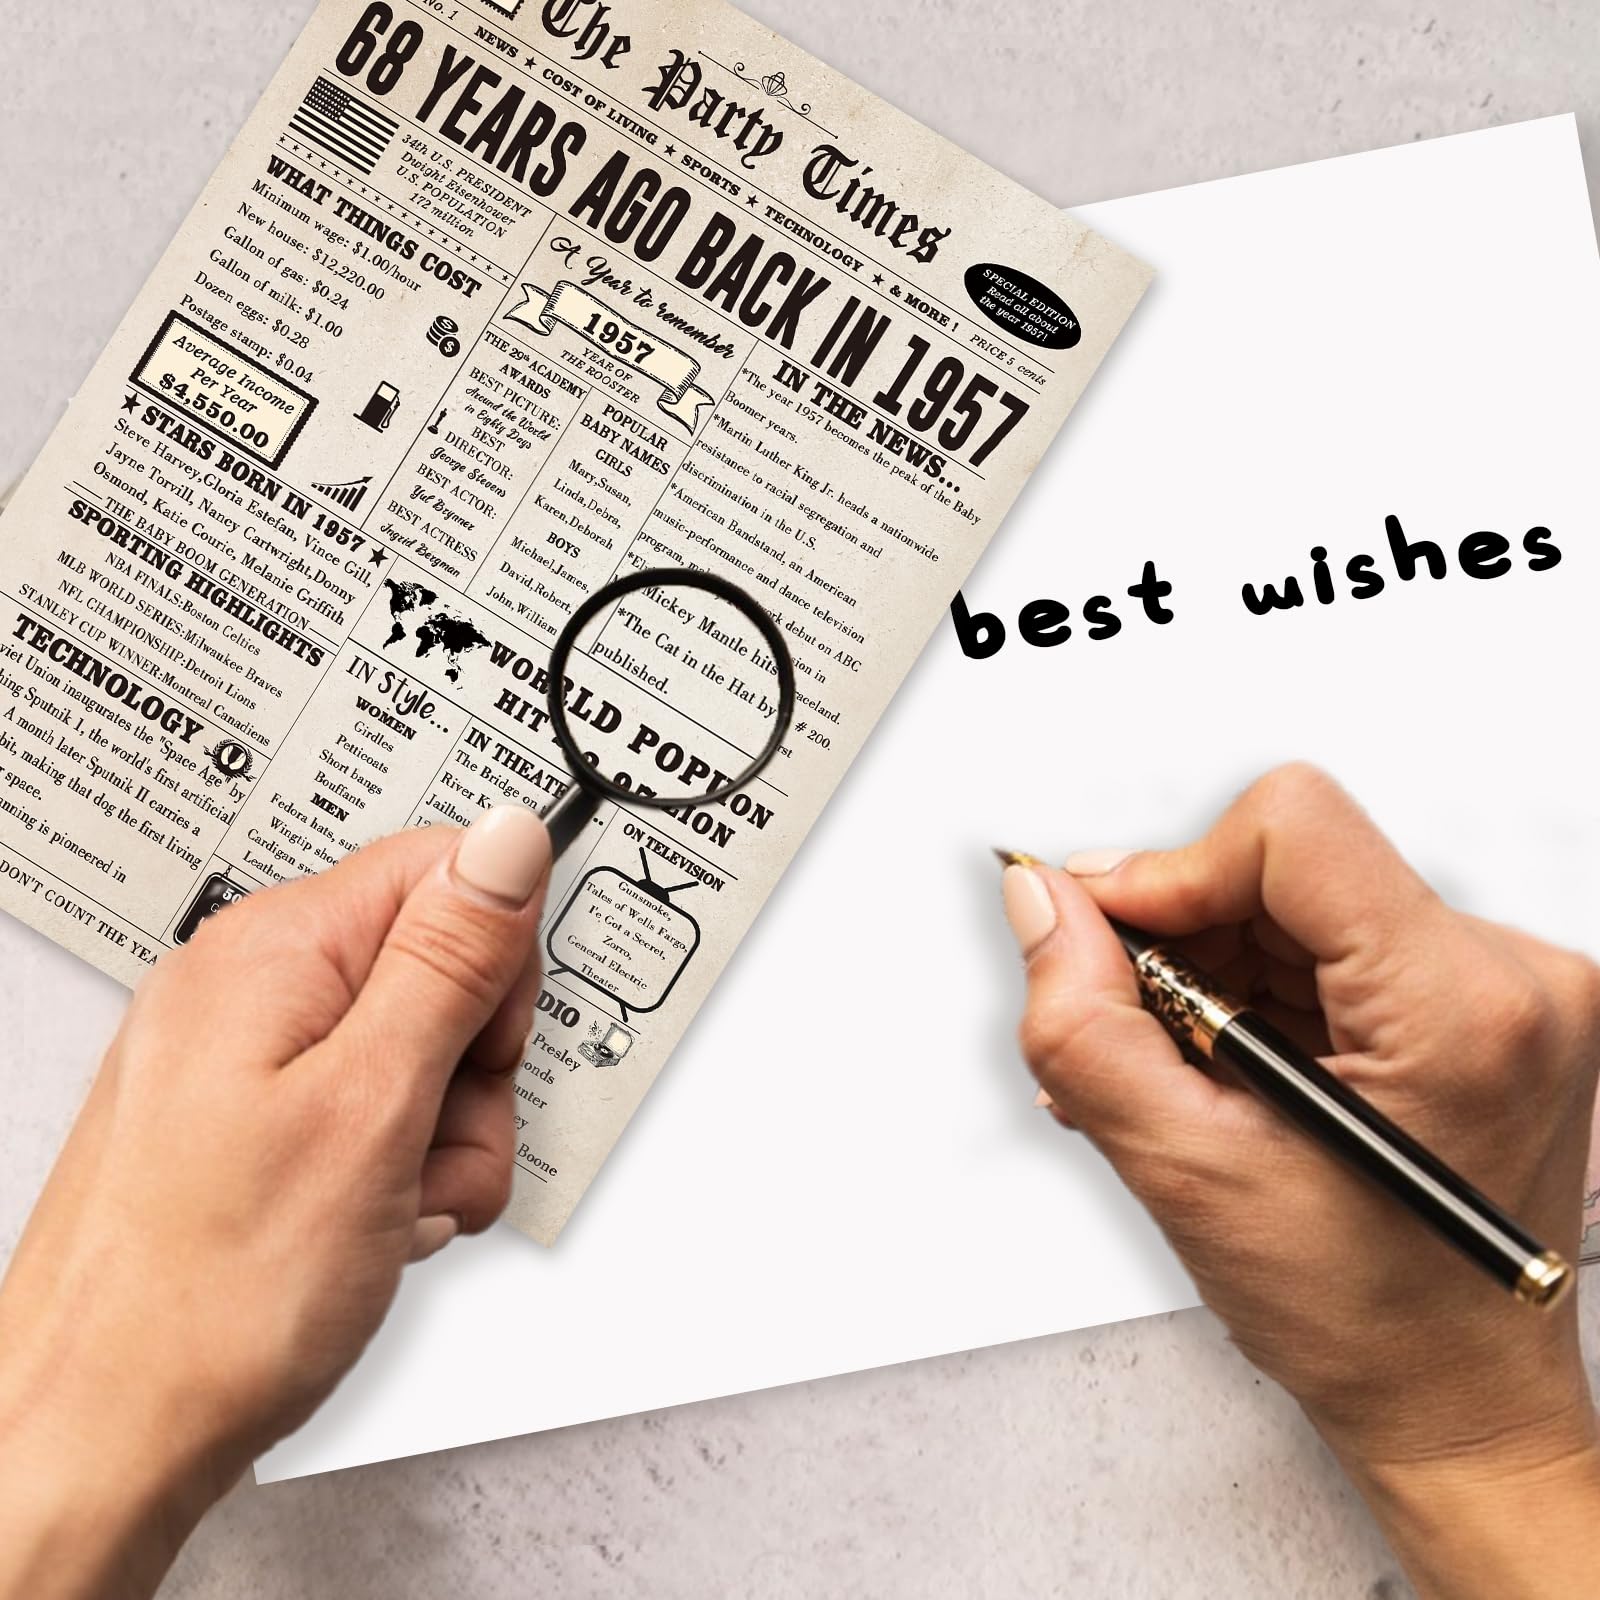 No. 1
The Party Times
NEWS ★ COST OF LIVING ★ SPORTS ★ TECHNOLOGY ★ & MORE !
PRICE 5 cents
68 YEARS AGO BACK IN 1957
SPECIAL EDITION
Read all about
the year 1957!
34th U.S. PRESIDENT
Dwight Eisenhower
U.S. POPULATION
172 million
WHAT THINGS COST
Minimum wage: $1.00/hour
New house: $12,220.00
Gallon of gas: $0.24
Gallon of milk: $1.00
Dozen eggs: $0.28
Postage stamp: $0.04
Average Income
Per Year
$4,550.00
★ STARS BORN IN 1957 ★
Steve Harvey,Gloria Estefan, Vince Gill,
Jayne Torvill, Nancy Cartwright,Donny
Osmond, Katie Couric, Melanie Griffith
THE BABY BOOM GENERATION
SPORTING HIGHLIGHTS
NBA FINALS:Boston Celtics
MLB WORLD SERIES:Milwaukee Braves
NFL CHAMPIONSHIP:Detroit Lions
STANLEY CUP WINNER:Montreal Canadiens
TECHNOLOGY
viet Union inaugurates the "Space Age" by
hing Sputnik 1, the world's first artificial
A month later Sputnik II carries a
bit, making that dog the first living
space.
nning is pioneered in
DON'T COUNT THE YEA
A Year to remember
1957
YEAR OF
THE ROOSTER
THE 29th ACADEMY
AWARDS
BEST PICTURE:
Around the World
in Eighty Days
BEST
DIRECTOR:
George Stevens
BEST ACTOR:
Yul Brynner
BEST ACTRESS
Ingrid Bergman
POPULAR
BABY NAMES
GIRLS
Mary,Susan,
Linda,Debra,
Karen,Deborah
BOYS
Michael,James,
David,Robert,
John,William
IN THE NEWS...
*The year 1957 becomes the peak of the Baby
Boomer years.
*Martin Luther King Jr. heads a nationwide
resistance to racial segregation and
discrimination in the U.S.
*American Bandstand, an American
music-performance and dance television
program, ma work debut on ABC
sion in
raceland.
Mickey Mantle hits # 200.
*The Cat in the Hat by rst
published.
WORLD POPU ION
HIT
LION
IN Style...
WOMEN
Girdles
Petticoats
Short bangs
Bouffants
MEN
Fedora hats, sui
Wingtip shoe
Cardigan swe
Leather
IN THEATE
The Bridge on
River K
Jailhou
ON TELEVISION
Gunsmoke,
Tales of Wells Fargo,
I'e Got a Secret,
Zorro,
General Electric
Theater
DIO
Presley
monds
unter
ey
Boone
best wishes